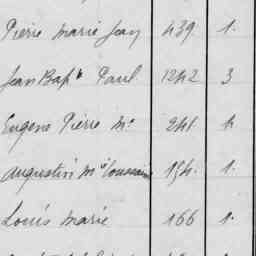 Pierre Marie Jean 439. 1.
Jean Bapte Paul 1242 3
Eugène Pierre Me 241. 4
Augustin Mie Toussaint 154. 1.
Louis Marie 166 1.